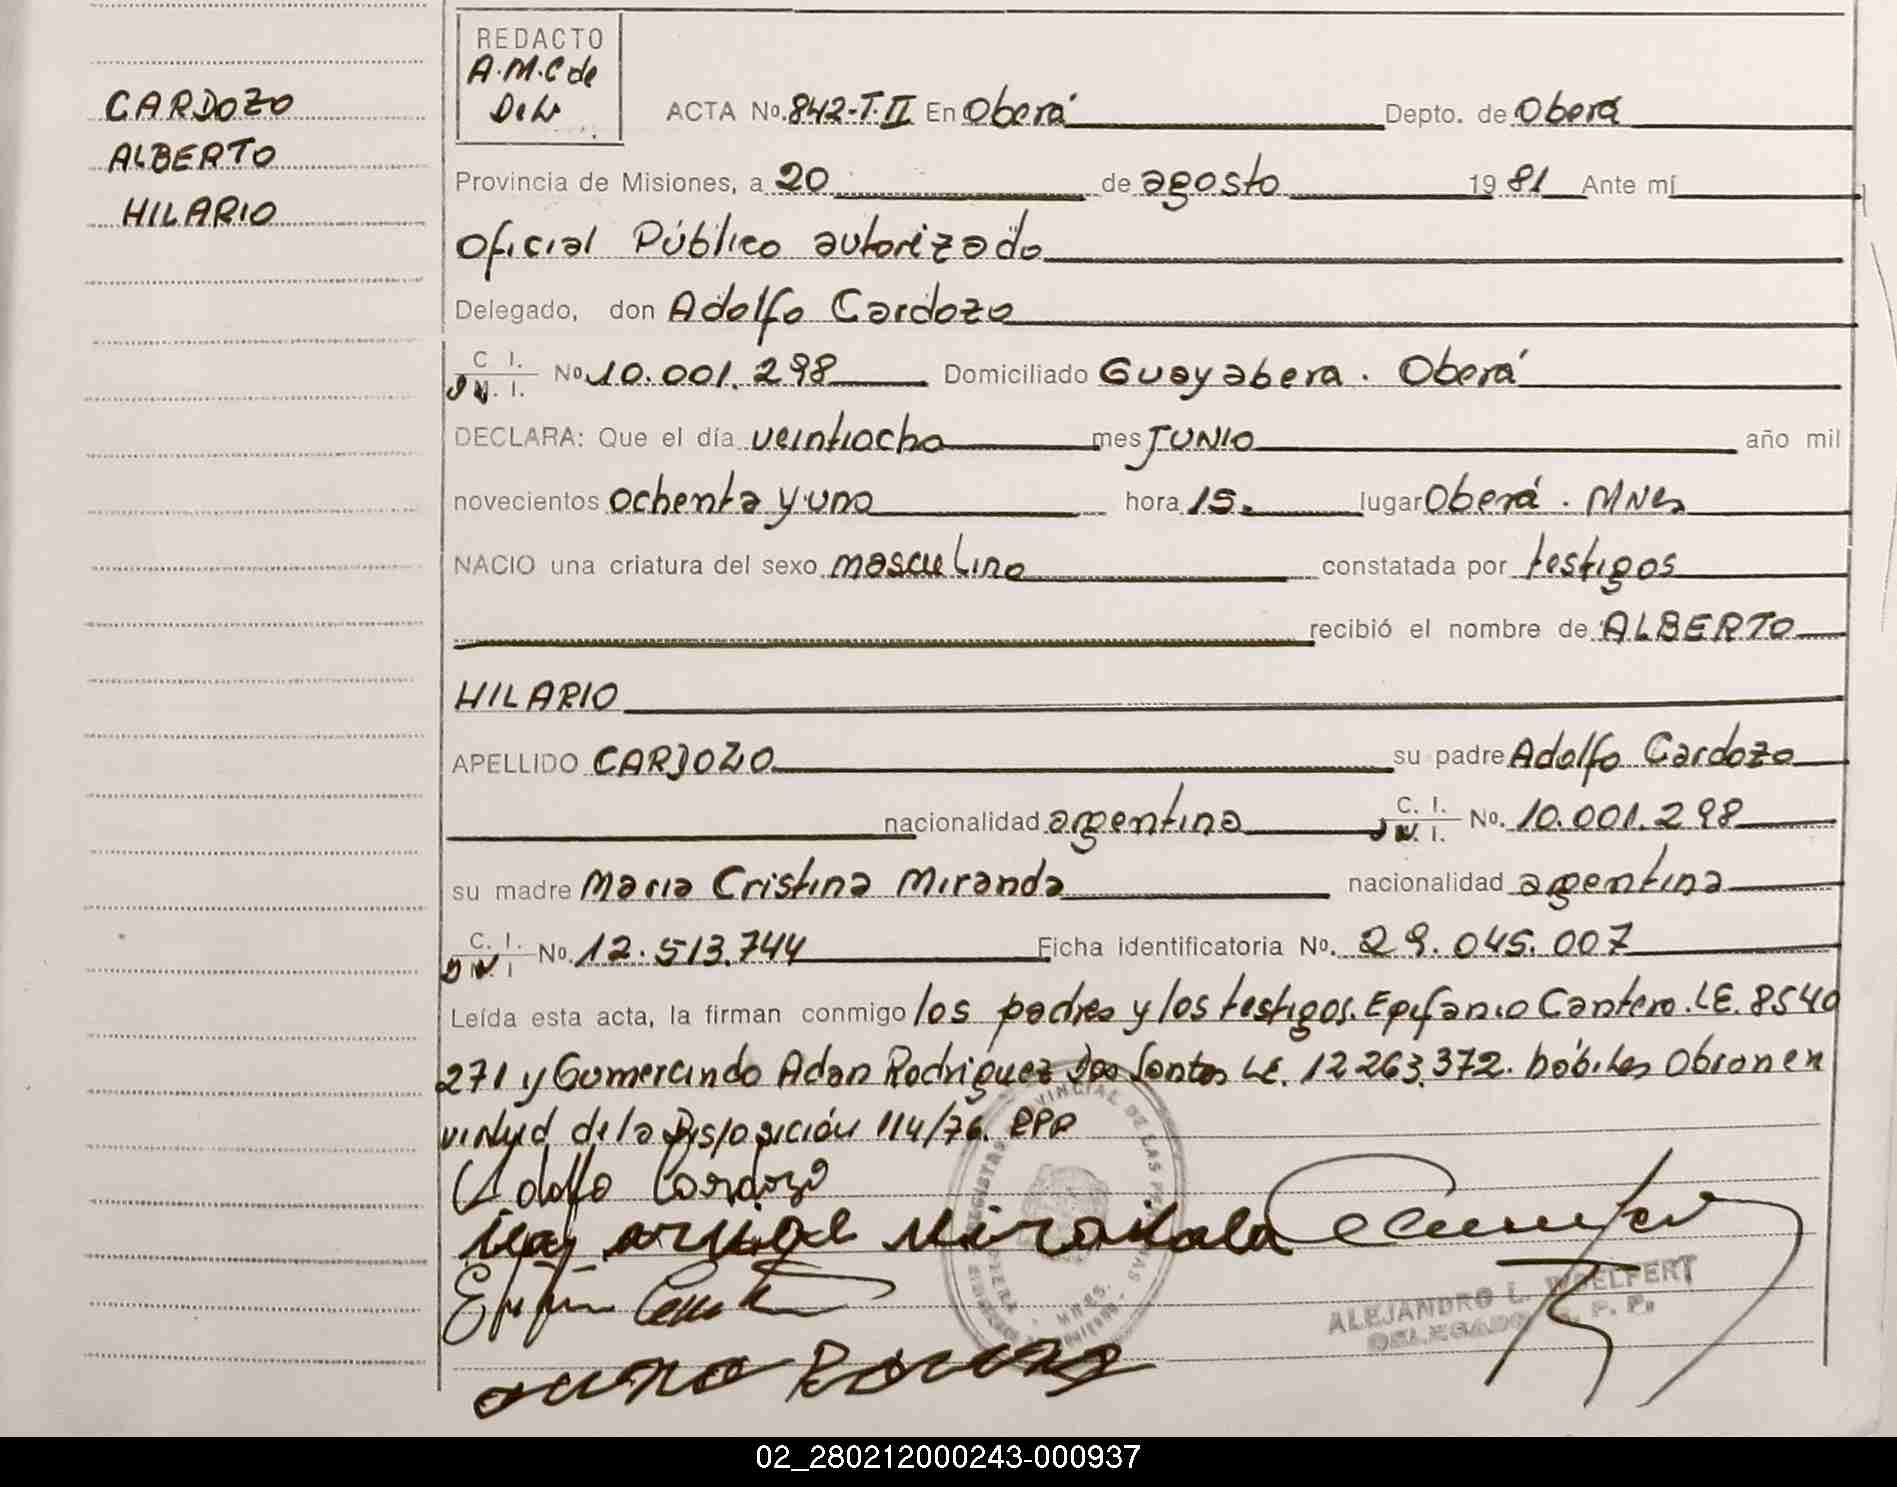 CARDOZO
ALBERTO
HILARIO
REDACTO
A.M.C de
De W
ACTA No. 842-T.II En Oberá Depto. de Oberá
Provincia de Misiones, a 20 de agosto 19 81 Ante mí
Oficial Público autorizado
Delegado, don Adolfo Cardozo
C I. D N. I. No 10.001.298 Domiciliado Guayabera. Oberá
DECLARA: Que el día veintiocho mes JUNIO año mil
novecientos ochenta y uno hora 15. lugar Oberá. MNes
NACIO una criatura del sexo masculino constatada por testigos
recibió el nombre de ALBERTO
HILARIO
APELLIDO CARDOZO su padre Adolfo Cardozo
nacionalidad argentina C. I. D N. I. No. 10.001.298
su madre Maria Cristina Miranda nacionalidad argentina
C. I. D N. I No. 12.513.744 Ficha identificatoria No. 29.045.007
Leída esta acta, la firman conmigo los padres y los testigos. Epifanio Cantero. LE. 8540
271 y Gumercindo Adan Rodriguez Dos Santos LE. 12 263.372. hábiles Obran en
virtud de la Disposición 114/76. RPP
Adolfo Cardozo
ALEJANDRO L. WOELFERT
DELEGADO R. P. P.
02_280212000243-000937